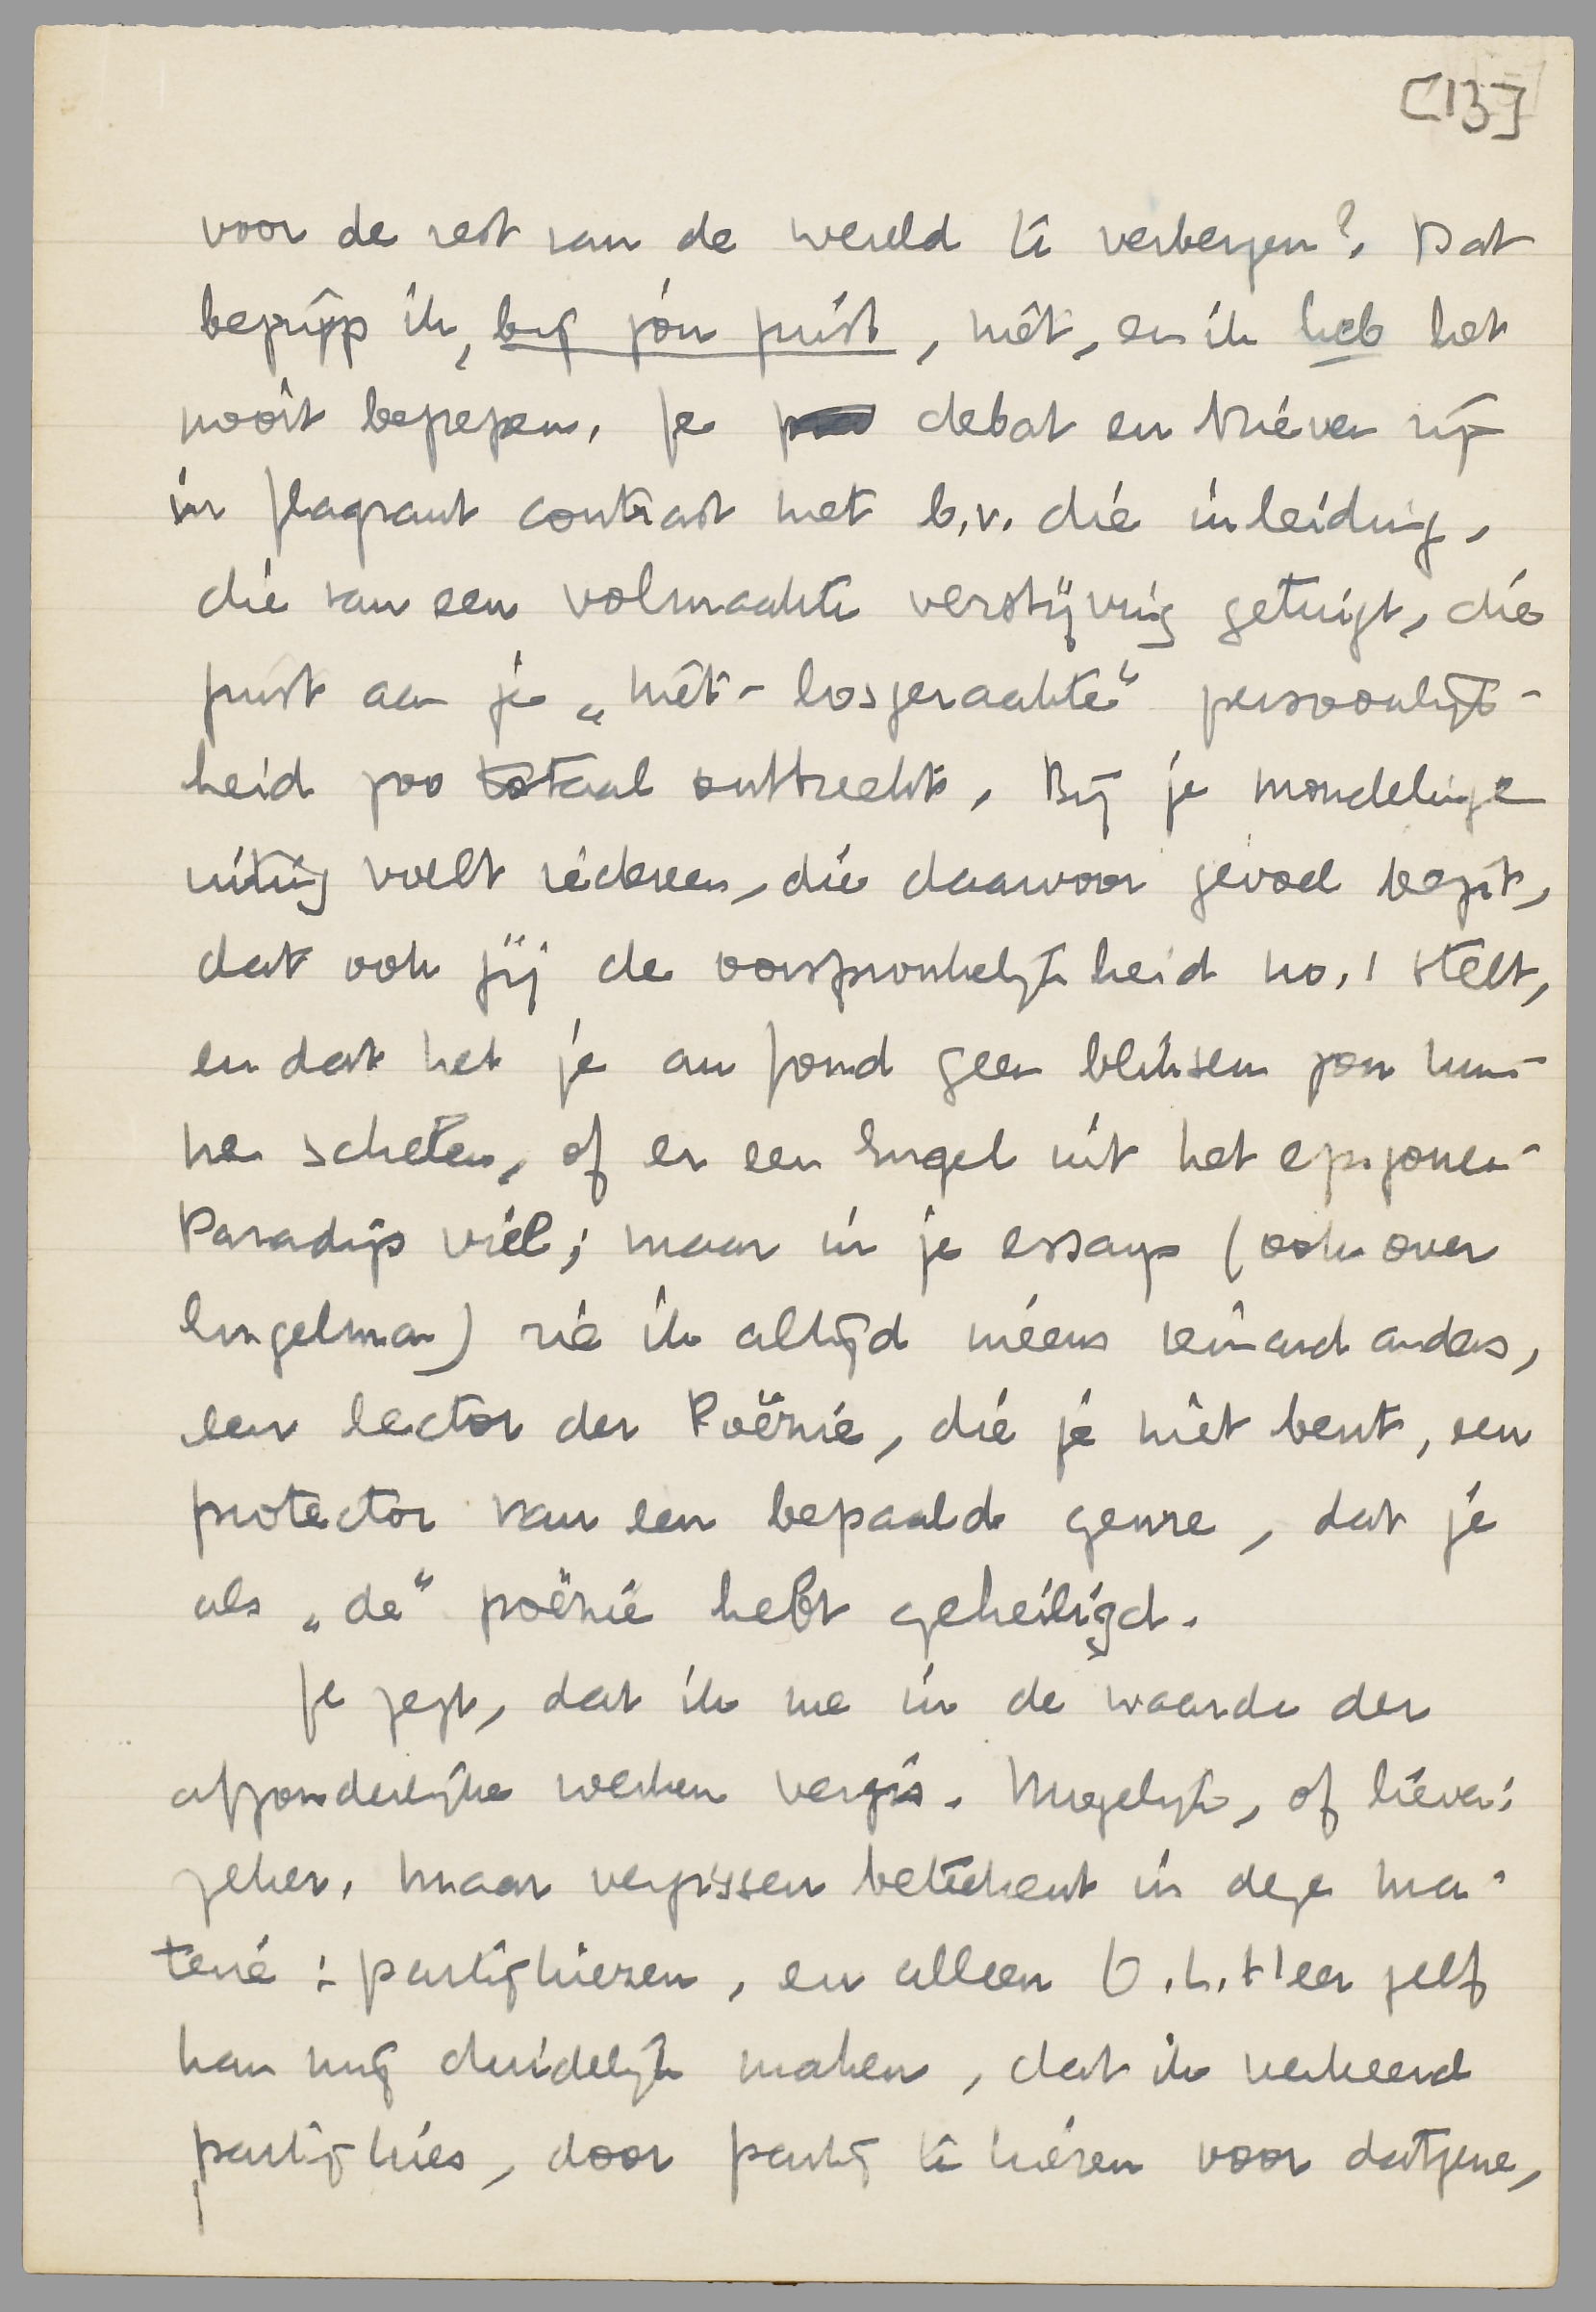 [13]
voor de rest van de wereld te verbergen? Dat
begrijp ik, bij jou juist, niet, en ik heb het
nooit begrepen. Je debat en brieven zijn
in flagrant contrast met b.v. die inleiding,
die van een volmaakte verstijving getuigt, die
juist aan je „niet-losgeraakte" persoonlijk-
heid zoo totaal onttrekt. Bij je mondelinge
uiting voelt iedereen, die daarvoor gevoel bezit,
dat ook jij de oorspronkelijkheid no. 1 stelt,
en dat het je au fond geen bliksem zou kun-
nen schelen, of er een Engel uit het epigonen-
Paradijs viel; maar in je essays (ook over
Engelman) zie ik altijd ineens iemand anders,
een lector der Poëzie, die je niet bent, een
protector van een bepaald genre, dat je
als „de" poëzie hebt geheiligd.
Je zegt, dat ik me in de waarde der
afzonderlijke werken vergis. Mogelijk, of liever:
zeker. Maar vergissen beteekent in deze ma-
terie: partijkiezen, en alleen O.L. Heer zelf
kan mij duidelijk maken, dat ik verkeerd
partij kies, door partij te kiezen voor datgene,